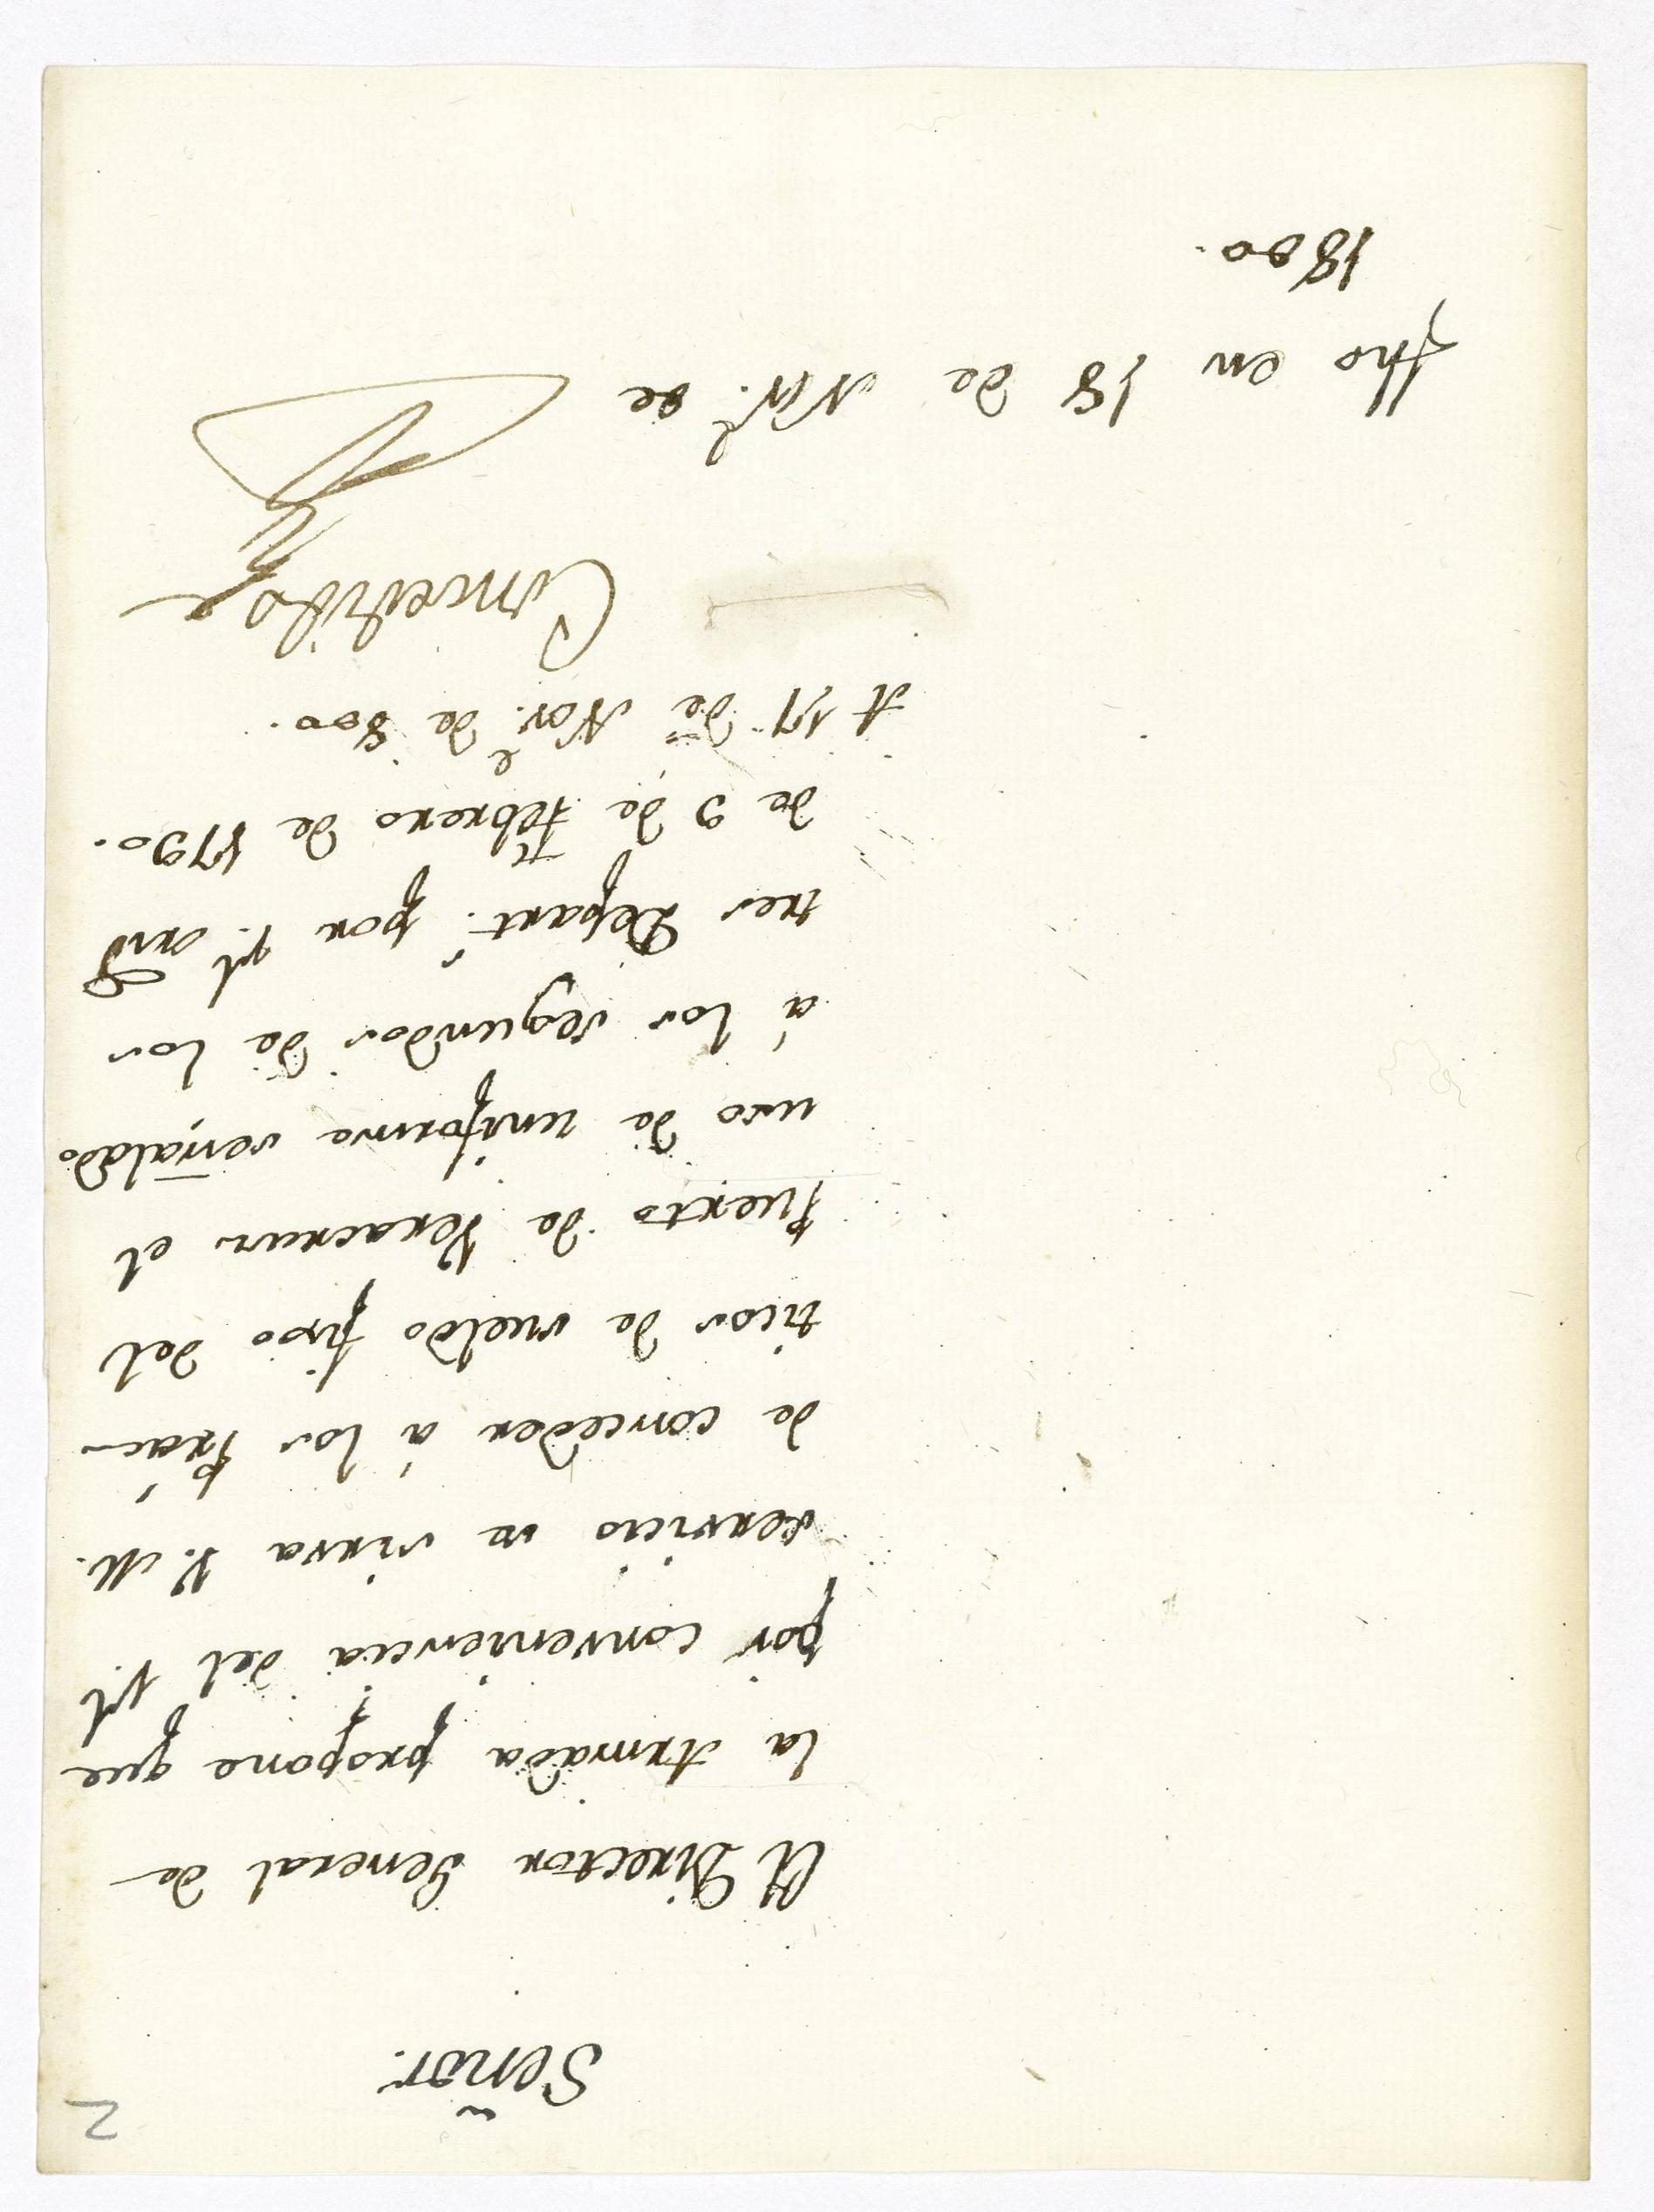 2
Señor.
El Director General de
la Armada propone que
por conveniencia del Rl
servicio se sirva V. M.
de conceder á los Prác-
ticos de sueldo fixo del
Puerto de Veracruz el
uso de uniforme señalado
á los segundos de los
tres Depart.s por Rl. orn
de 9 de Febrero de 1790.
A 17 de Nov.e de 800.
Concedido
fho en 18 de Nov.e de
1800.